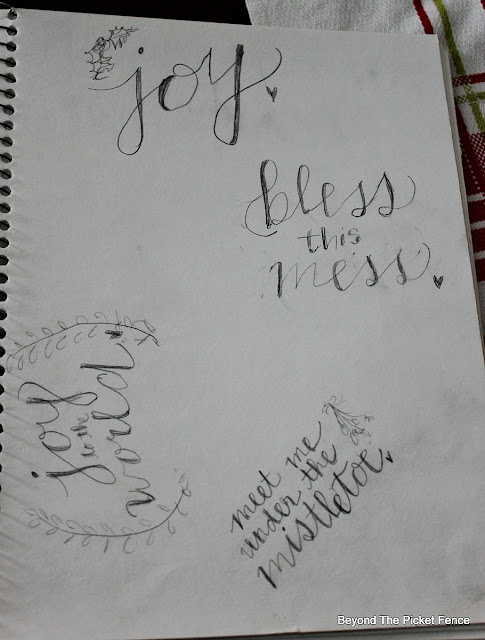 joy.
bless
this
mess.
joy
to the
world.
meet me
under the
mistletoe.
Beyond The Picket Fence